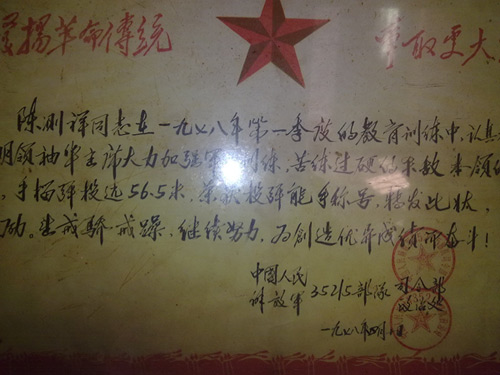 扬革命传统
争取更大
陈刚祥同志在一九七八年第一季度的教育训练中,认真
明领袖华主席大力加强军训练,苦练过硬技术教本领
,手榴弹投远56.5米,荣获投弹能手称号,特发此状,
励。望戒骄戒躁,继续努力,为创造优异成绩而奋斗!
中国人民
解放军 35215部队 司令部
政治处
一九七八年四月 日